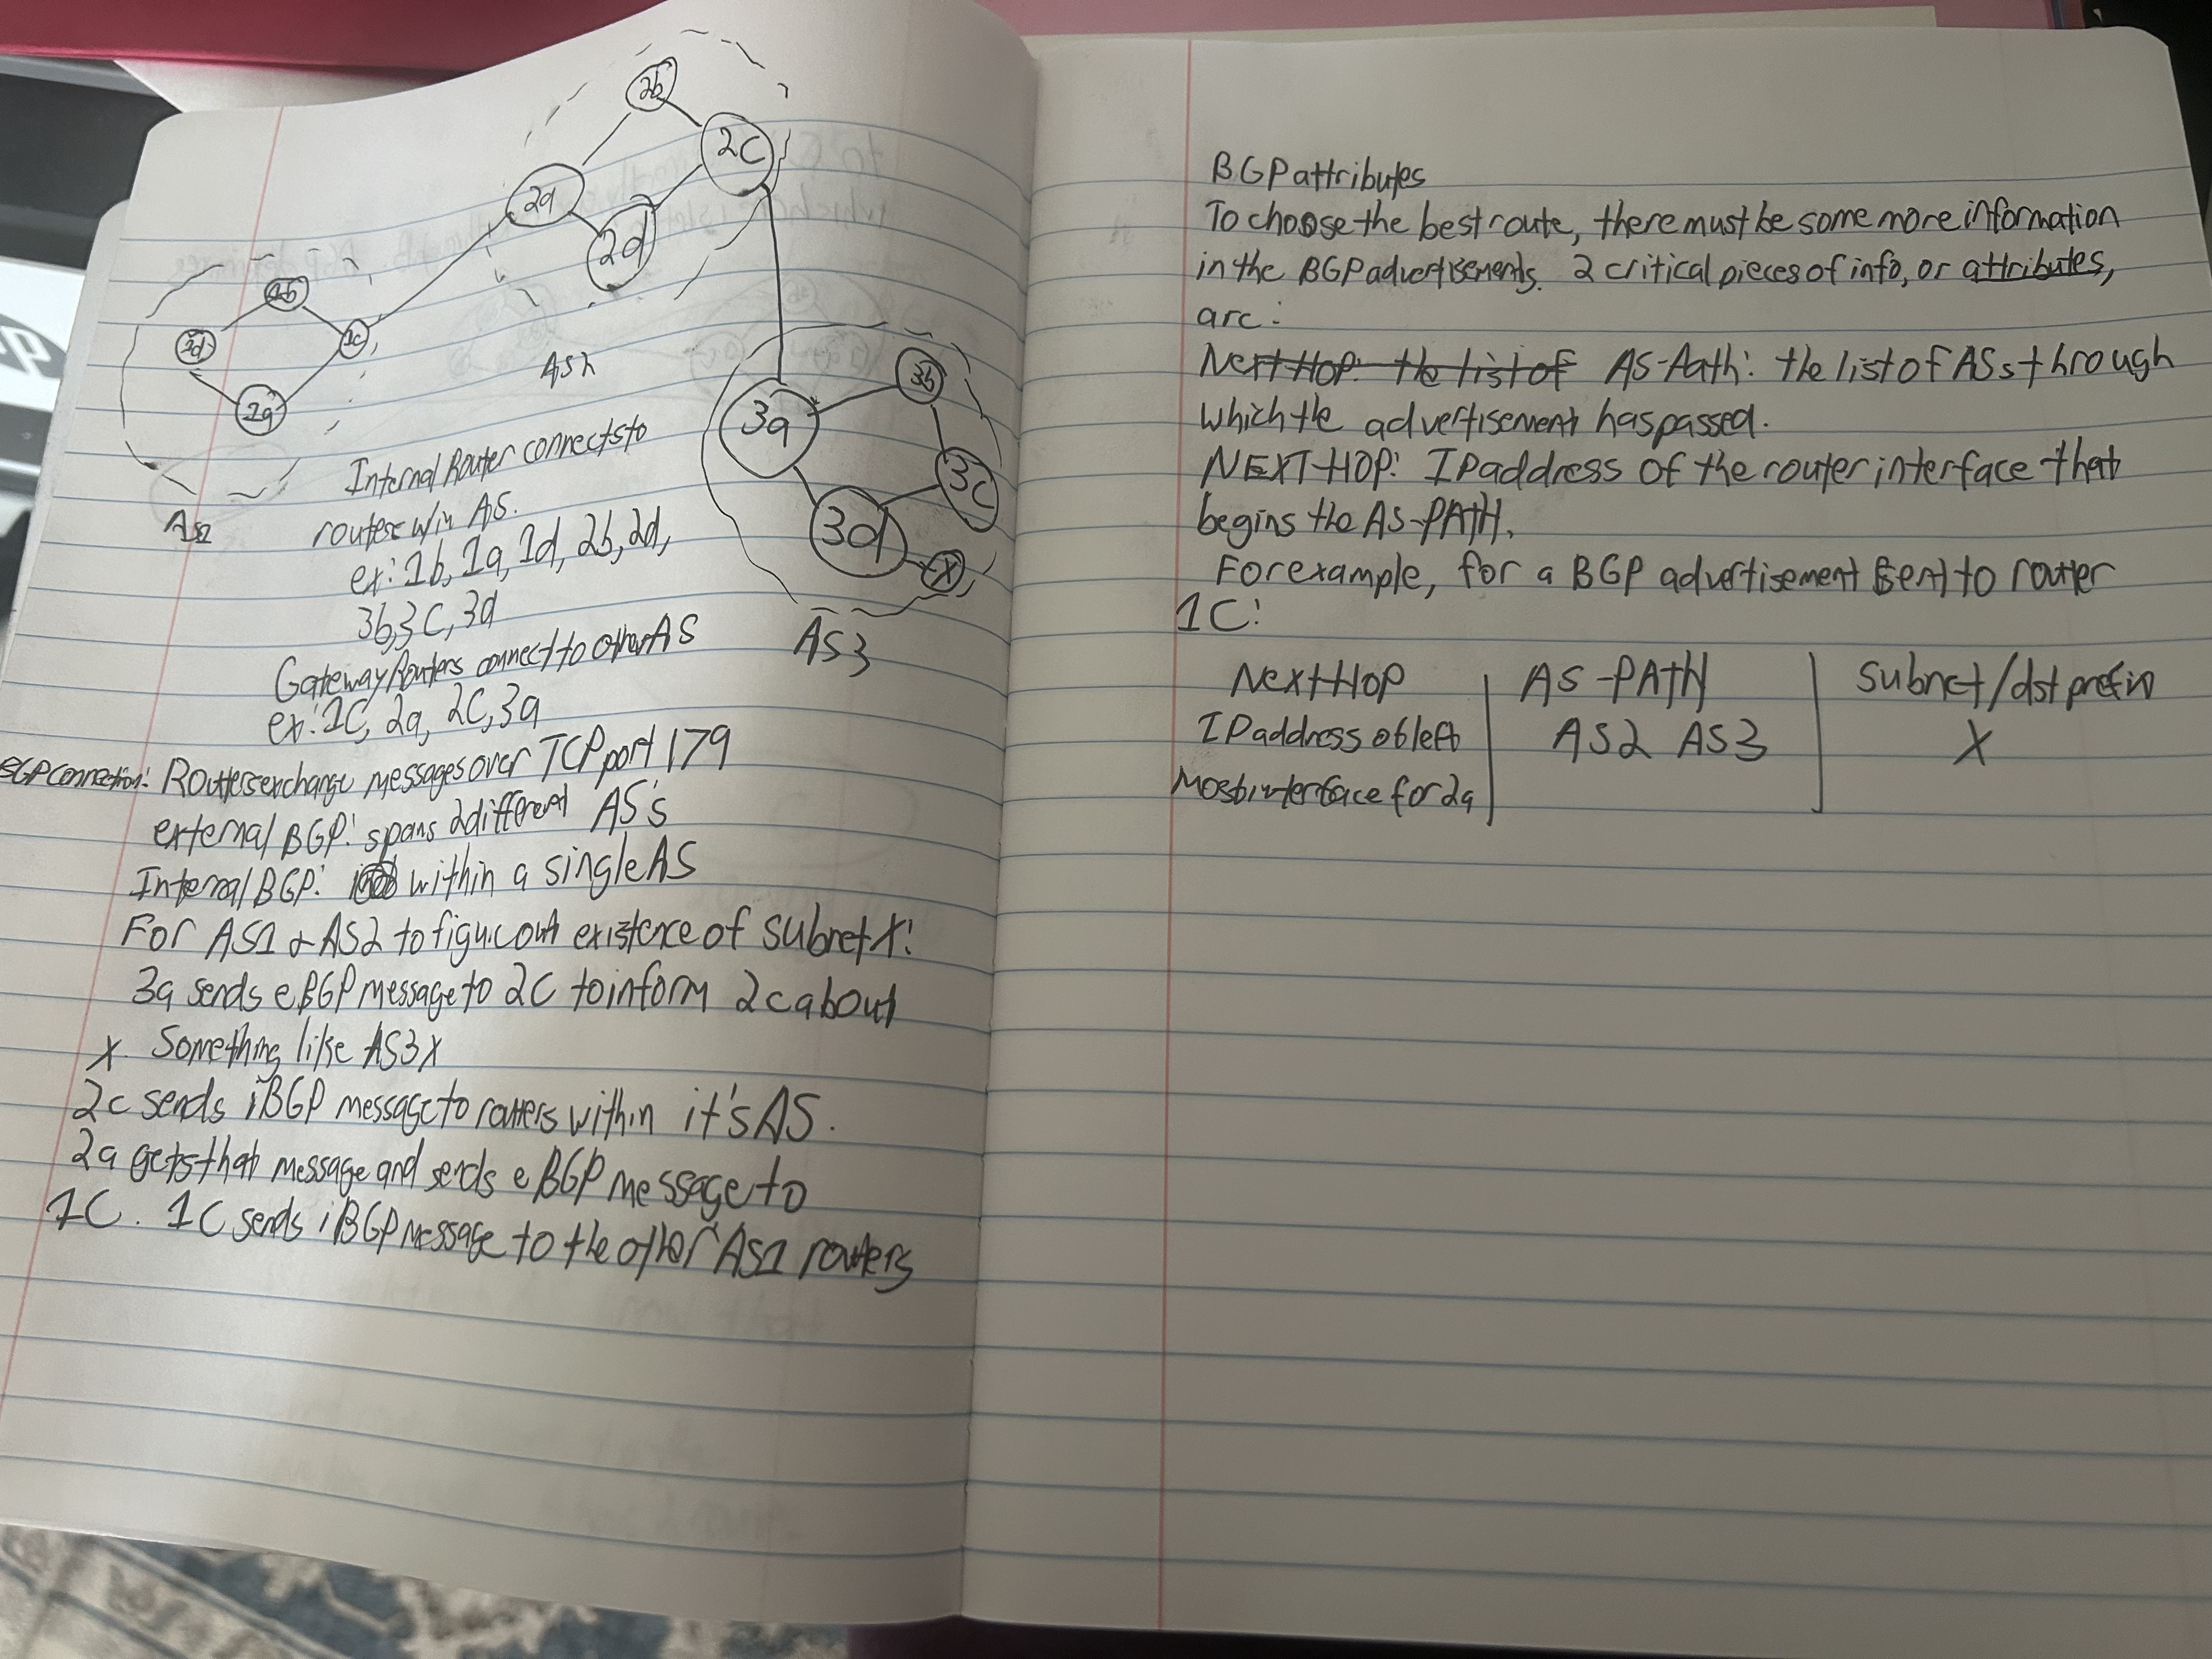 2b
2c
2a
2d
1b
1d
1c
1a
AS2
3b
3a
3c
3d
X
AS1
AS3
Internal Router connects to
routers w/in AS.
ex: 1b, 1a, 1d, 2b, 2d,
3b, 3C, 3d
Gateway Routers connect to other AS
ex: 1C, 2a, 2C, 3a
BGP Connection: Routers exchange messages over TCP port 179
external BGP: spans 2 different AS's
Internal BGP: within a single AS
For AS1 & AS2 to figure out existence of subnet X:
3a sends eBGP message to 2C to inform 2c about
X. Something like AS3X
2c sends iBGP message to routers within it's AS.
2a gets that message and sends eBGP message to
1C. 1C sends iBGP message to the other AS1 routers
BGP attributes
To choose the best route, there must be some more information
in the BGP advertisements. 2 critical pieces of info, or attributes,
are:
Next Hop: the list of AS-Path: the list of ASs through
which the advertisement has passed.
NEXT-HOP: IP address of the router interface that
begins the AS-PATH.
For example, for a BGP advertisement sent to router
1C:
Next Hop | AS-PATH | Subnet/dst prefix
IP address of left | AS2 AS3 | X
Most interface for 2a